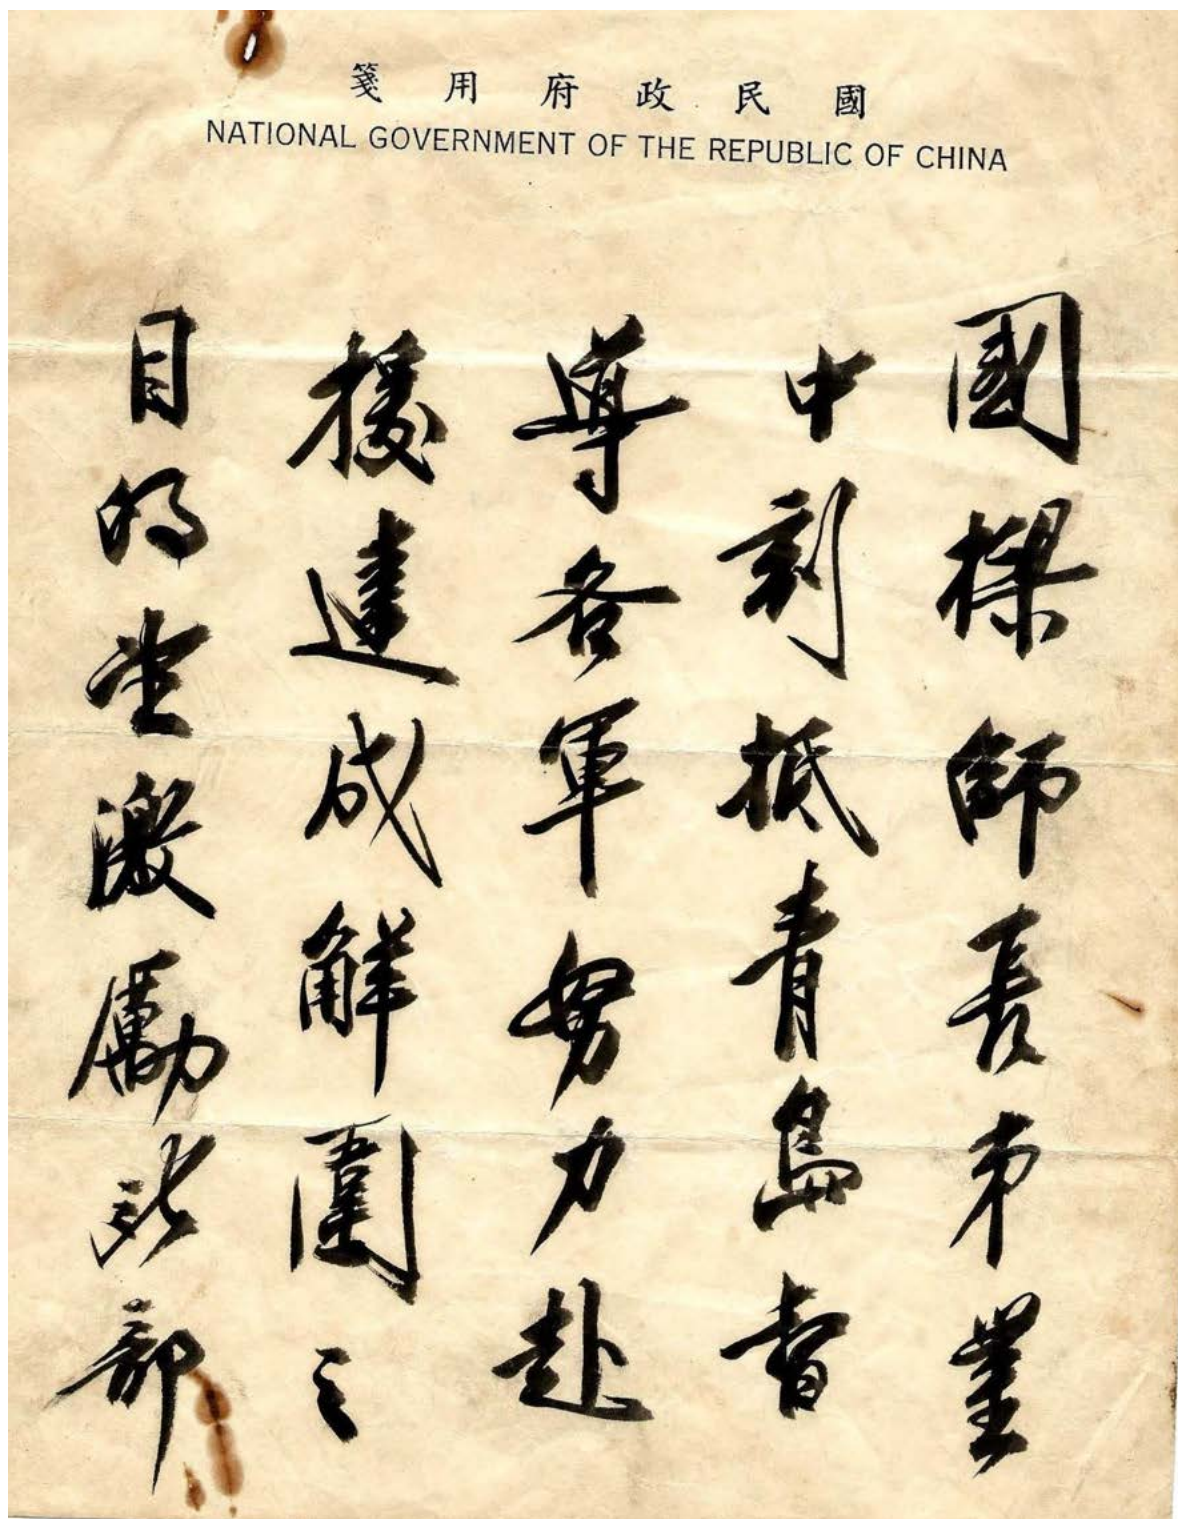 國民政府用箋
NATIONAL GOVERNMENT OF THE REPUBLIC OF CHINA
國樑師長弟鑒
中刻抵青島督
導各軍努力赴
援達成解圍之
目的望激勵所部